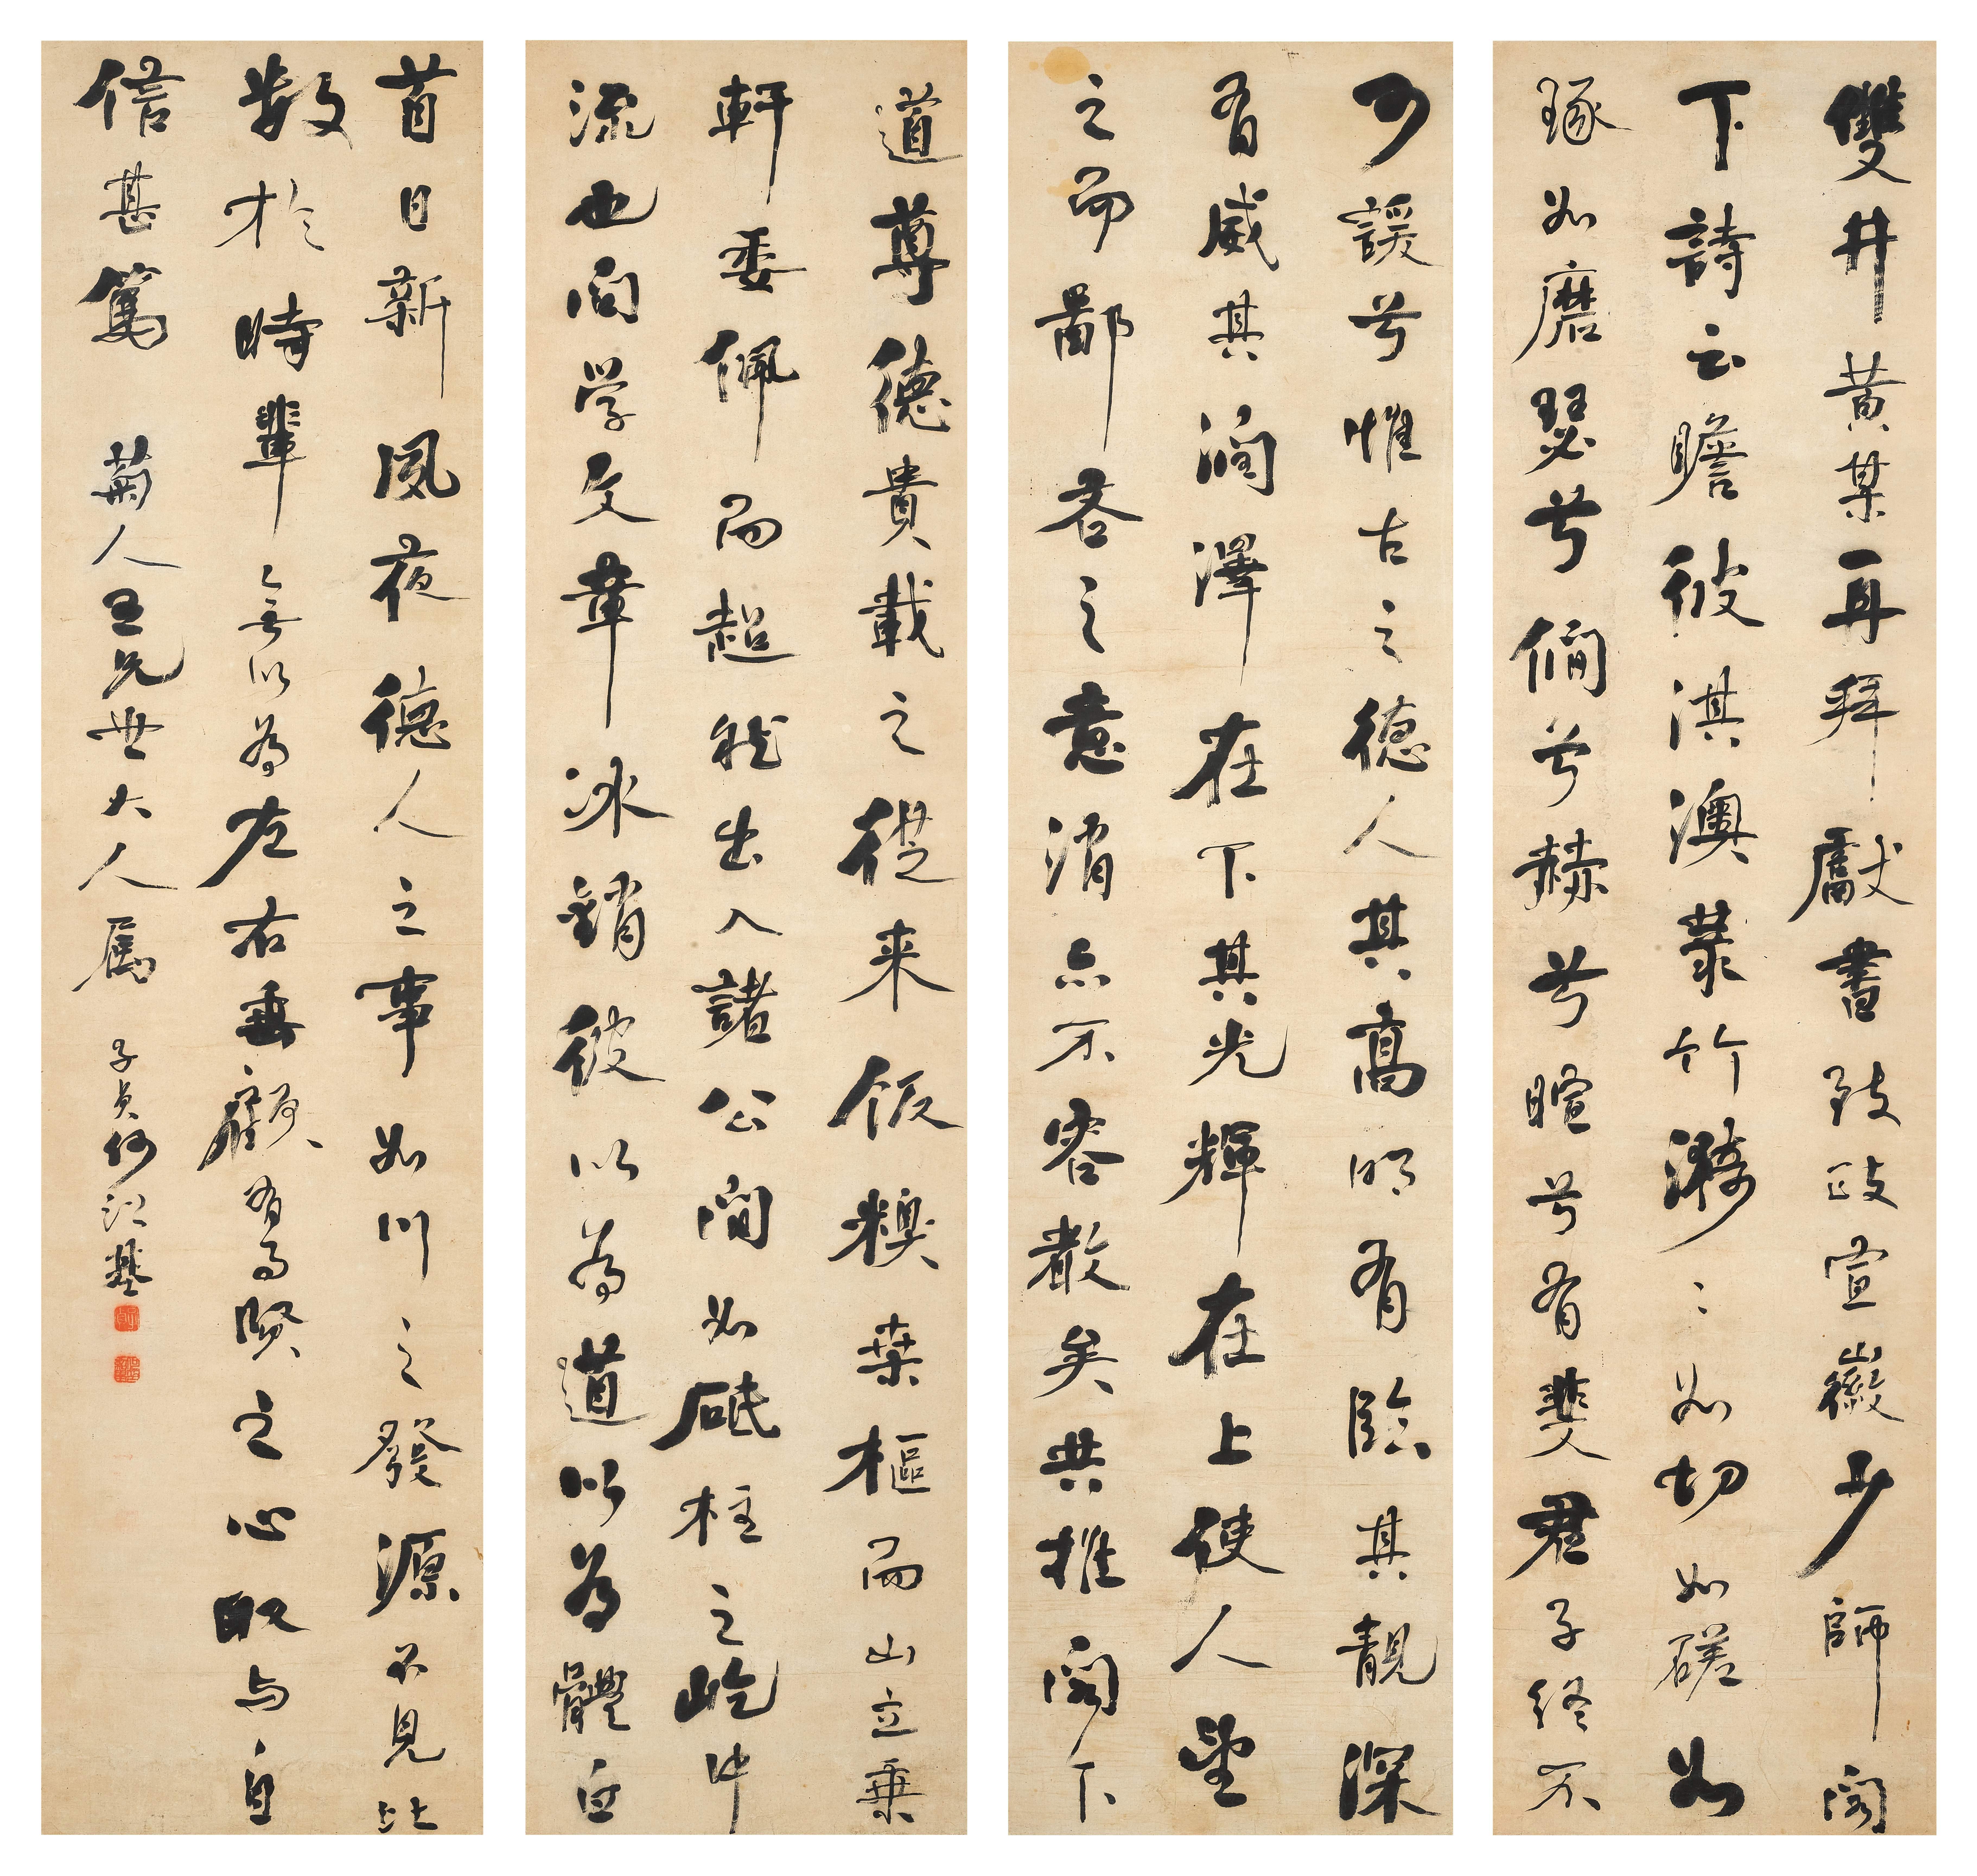 雙井黃某再拜獻書致政宣徽少師閤
下詩云瞻彼淇澳菉竹漪〻如切如磋如
琢如磨瑟兮僩兮赫兮暄兮有斐君子終不
可諼兮惟古之德人其高明有臨其靚深
有威其潤澤在下其光輝在上使人望
之而鄙吝之意消亦不容散矣共推閤下
道尊德貴載之從来飯糗葉樞而山立乗
軒委佩而超然出入諸公間如砥柱之屹中
流也問学文章冰銷彼以為道以為體白
首日新夙夜德人之事如川之發源不見比
數於時輩無以為左右垂顧有為賢之心取与自
信甚篤 菊人五兄世大人屬 子貞何紹基